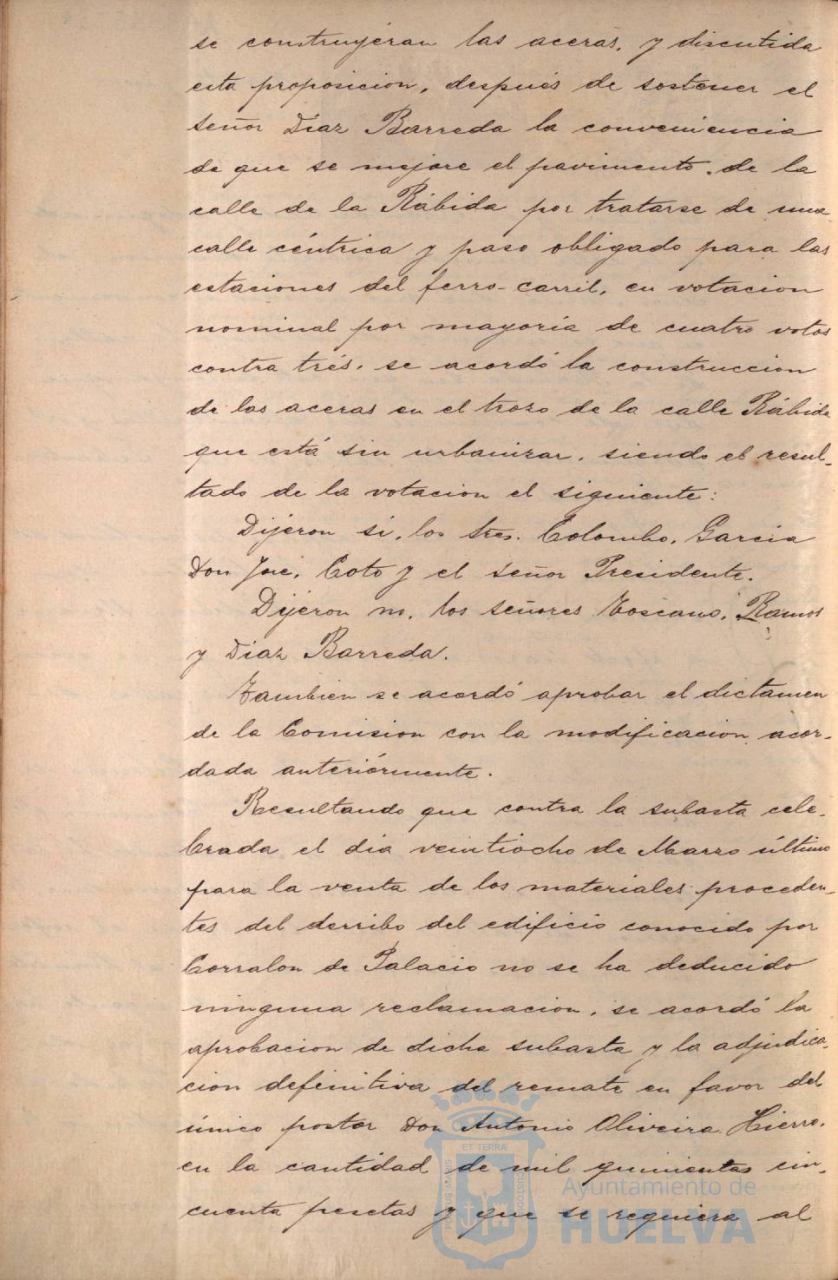 se construyeran las aceras, y discutida
esta proposicion, después de sostener el
señor Diaz Barreda la conveniencia
de que se mejore el pavimento de la
calle de la Rábida por tratarse de una
calle céntrica y paso obligado para las
estaciones del ferro-carril, en votacion
nominal por mayoría de cuatro votos
contra trés, se acordó la construccion
de las aceras en el trozo de la calle Rábida
que está sin urbanizar, siendo el resul-
tado de la votacion el siguiente:
Dijeron si, los Sres. Colombo, Garcia
Don José, Coto y el señor Presidente.
Dijeron no, los señores Toscano, Ramos
y Diaz Barreda.
Tambien se acordó aprobar el dictamen
de la Comision con la modificacion acor-
dada anteriórmente.
Resultando que contra la subasta cele-
brada el dia veintiocho de Marzo último
para la venta de los materiales proceden-
tes del derribo del edificio conocido por
Corralon de Palacio no se ha deducido
ninguna reclamacion, se acordó la
aprobacion de dicha subasta y la adjudica-
cion definitiva del remate en favor del
único postor Don Antonio Oliveira Hierro,
en la cantidad de mil quinientas cin-
cuenta pesetas y que se requiera al
ET TERRÆ
PORTUS MARIS
CUSTODIA
Ayuntamiento de
HUELVA